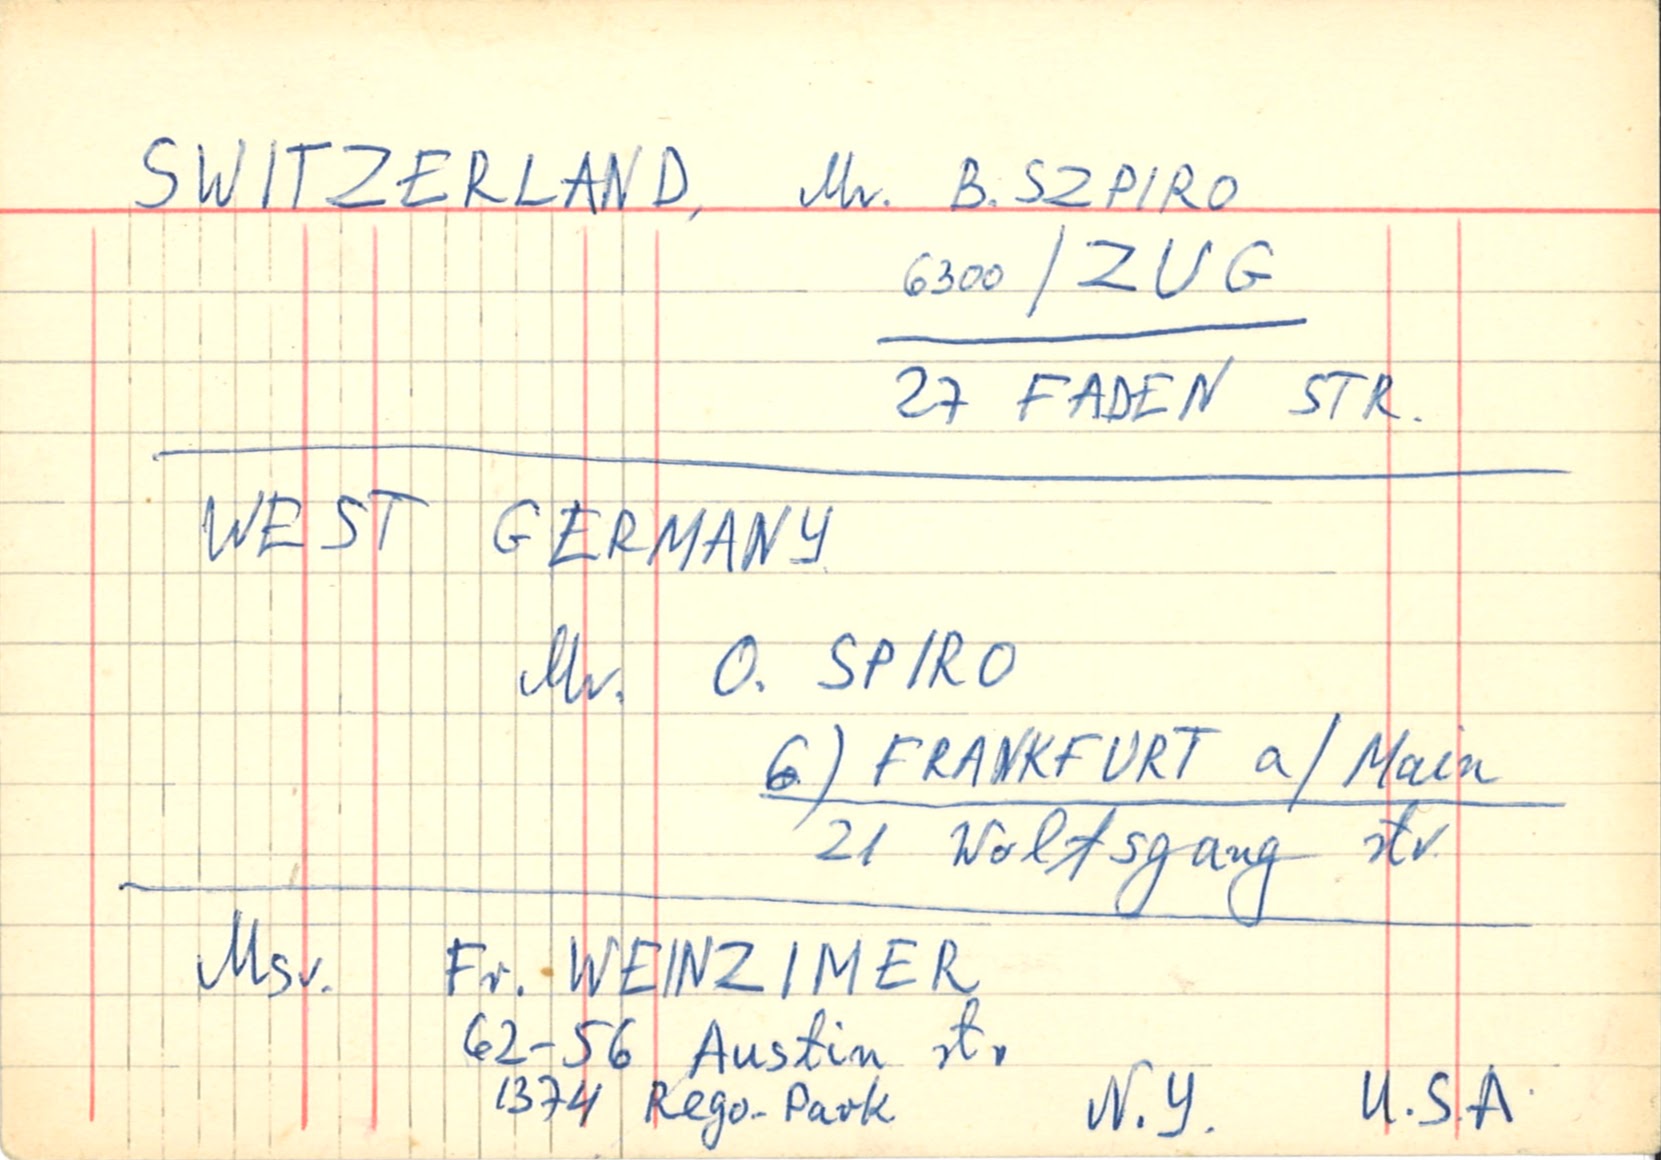 SWITZERLAND, Mr. B. SZPIRO
6300 / ZUG
27 FADEN STR.
WEST GERMANY
Mr. O. SPIRO
6) FRANKFURT a/Main
21 Wolfsgang str.
Msr. Fr. WEINZIMER
62-56 Austin str
1374 Rego-Park N.Y. U.S.A.